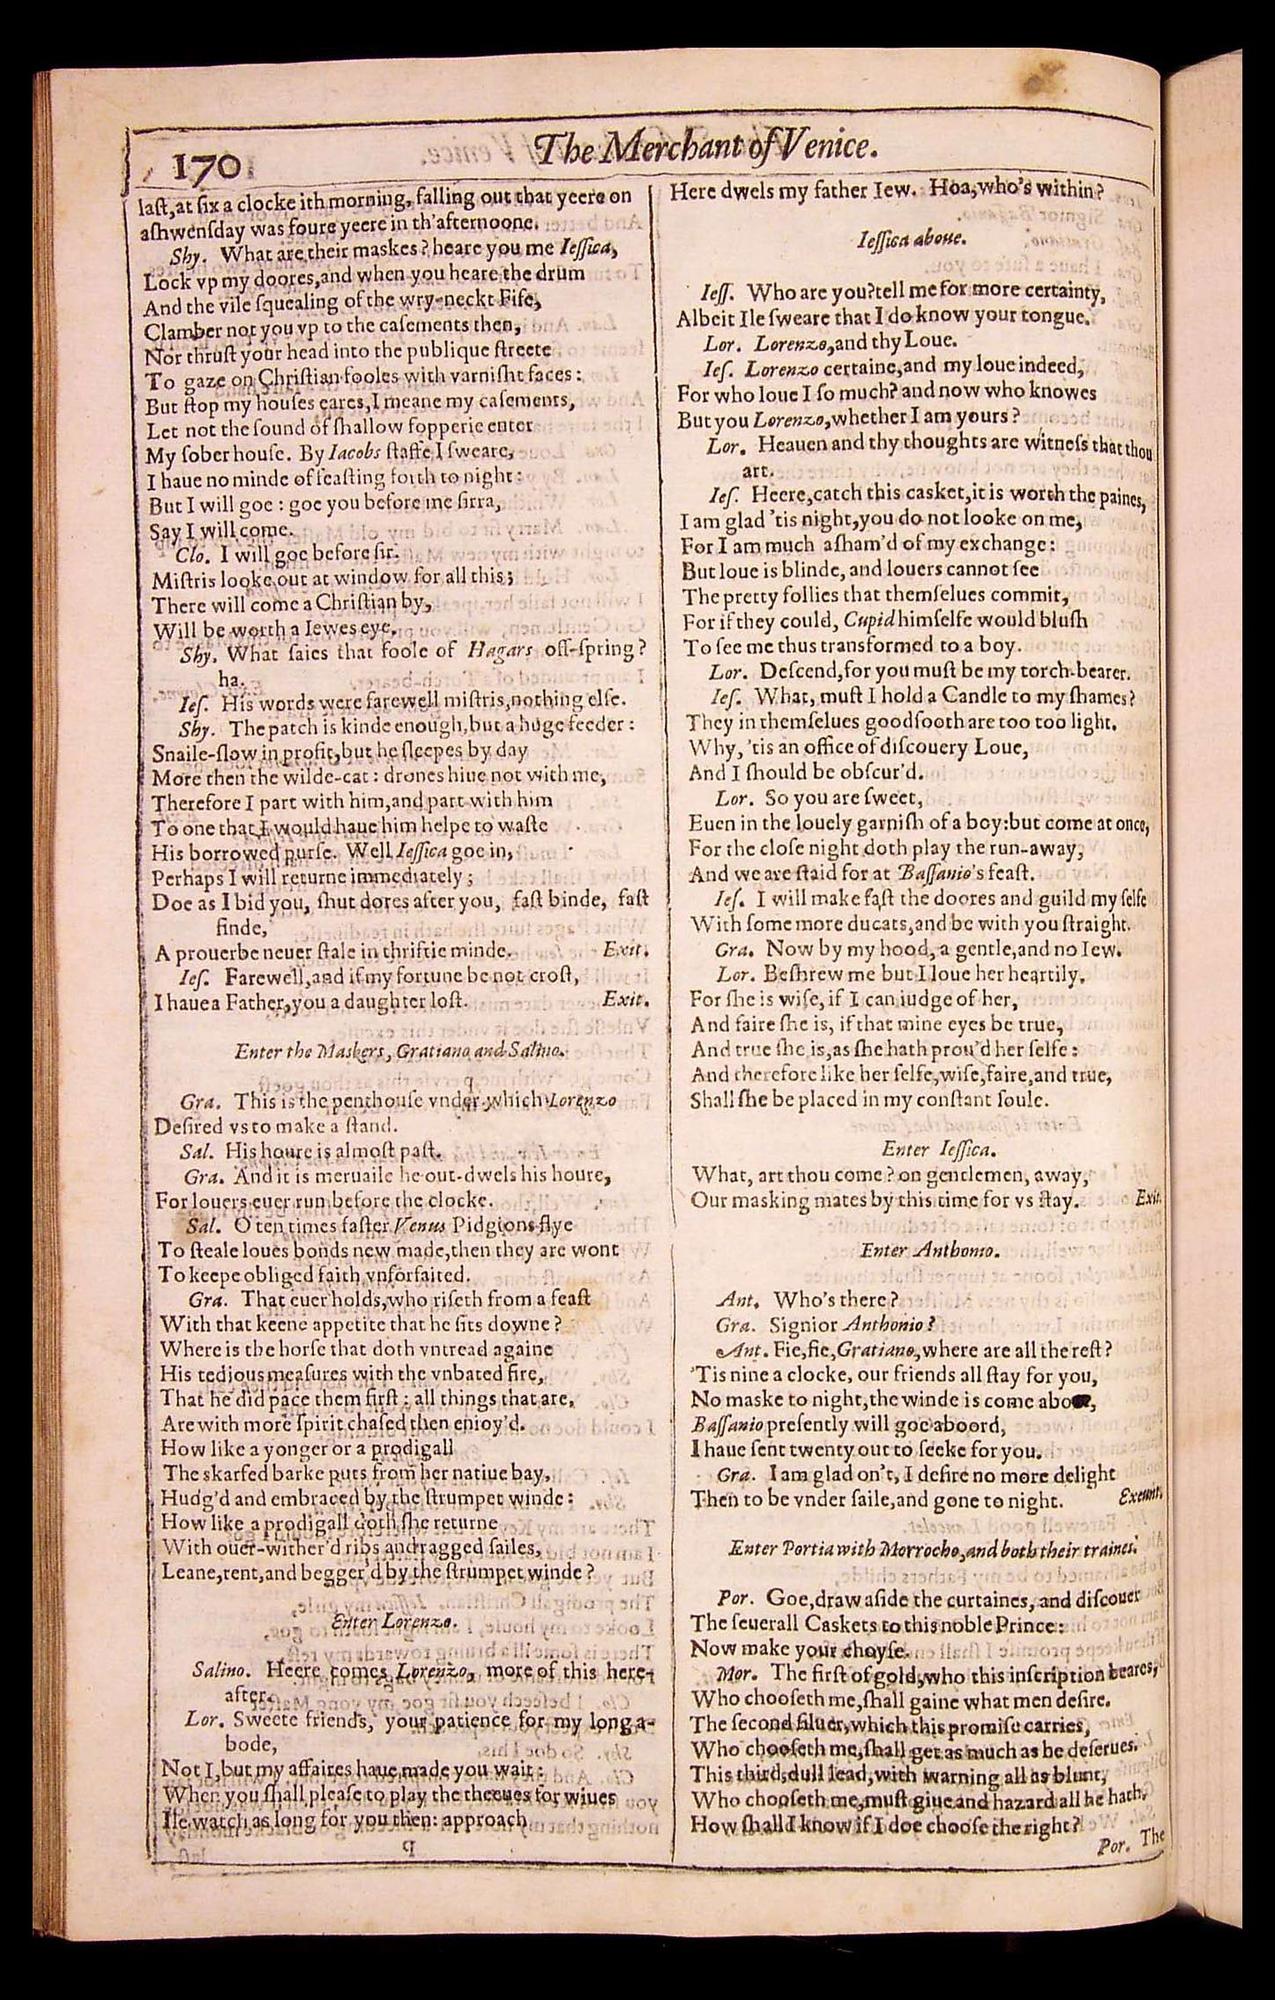 170
The Merchant of Venice.
laſt, at ſix a clocke ith morning, falling out that yeere on
aſhwenſday was foure yeere in th'afternoone.
Shy. What are their maskes? heare you me Ieſſica,
Lock vp my doores, and when you heare the drum
And the vile ſquealing of the wry-neckt Fife,
Clamber not you vp to the caſements then,
Nor thruſt your head into the publique ſtreete
To gaze on Chriſtian fooles with varniſht faces:
But ſtop my houſes eares, I meane my caſements,
Let not the ſound of ſhallow fopperie enter
My ſober houſe. By Iacobs ſtaffe I ſweare,
I haue no minde of feaſting forth to night:
But I will goe: goe you before me ſirra,
Say I will come.
Clo. I will goe before ſir.
Miſtris looke out at window for all this;
There will come a Chriſtian by,
Will be worth a Iewes eye.
Shy. What ſaies that foole of Hagars off-ſpring?
ha.
Ieſ. His words were farewell miſtris, nothing elſe.
Shy. The patch is kinde enough, but a huge feeder:
Snaile-ſlow in profit, but he ſleepes by day
More then the wilde-cat: drones hiue not with me,
Therefore I part with him, and part with him
To one that I would haue him helpe to waſte
His borrowed purſe. Well Ieſſica goe in,
Perhaps I will returne immediately;
Doe as I bid you, ſhut dores after you, faſt binde, faſt
finde,
A prouerbe neuer ſtale in thriftie minde. Exit.
Ieſ. Farewell, and if my fortune be not croſt,
I haue a Father, you a daughter loſt. Exit.
Enter the Maskers, Gratiano and Salino.
Gra. This is the penthouſe vnder which Lorenzo
Deſired vs to make a ſtand.
Sal. His houre is almoſt paſt.
Gra. And it is meruaile he out-dwels his houre,
For louers euer run before the clocke.
Sal. O ten times faſter Venus Pidgions flye
To ſteale loues bonds new made, then they are wont
To keepe obliged faith vnforfaited.
Gra. That euer holds, who riſeth from a feaſt
With that keene appetite that he ſits downe?
Where is the horſe that doth vntread againe
His tedious meaſures with the vnbated fire,
That he did pace them firſt: all things that are,
Are with more ſpirit chaſed then enioy'd.
How like a yonger or a prodigall
The skarfed barke puts from her natiue bay,
Hudg'd and embraced by the ſtrumpet winde:
How like a prodigall doth ſhe returne
With ouer-wither'd ribs and ragged ſailes,
Leane, rent, and begger'd by the ſtrumpet winde?
Enter Lorenzo.
Salino. Heere comes Lorenzo, more of this here-
after.
Lor. Sweete friends, your patience for my long a-
bode,
Not I, but my affaires haue made you wait:
When you ſhall pleaſe to play the theeues for wiues
Ile watch as long for you then: approach
Here dwels my father Iew. Hoa, who's within?
Ieſſica aboue.
Ieſſ. Who are you? tell me for more certainty,
Albeit Ile ſweare that I do know your tongue.
Lor. Lorenzo, and thy Loue.
Ieſ. Lorenzo certaine, and my loue indeed,
For who loue I ſo much? and now who knowes
But you Lorenzo, whether I am yours?
Lor. Heauen and thy thoughts are witneſs that thou
art.
Ieſ. Heere, catch this casket, it is worth the paines,
I am glad 'tis night, you do not looke on me,
For I am much aſham'd of my exchange:
But loue is blinde, and louers cannot ſee
The pretty follies that themſelues commit,
For if they could, Cupid himſelfe would bluſh
To ſee me thus transformed to a boy.
Lor. Deſcend, for you muſt be my torch-bearer.
Ieſ. What, muſt I hold a Candle to my ſhames?
They in themſelues goodſooth are too too light.
Why, 'tis an office of diſcouery Loue,
And I ſhould be obſcur'd.
Lor. So you are ſweet,
Euen in the louely garniſh of a boy: but come at once,
For the cloſe night doth play the run-away,
And we are ſtaid for at Baſſanio's feaſt.
Ieſ. I will make faſt the doores and guild my ſelfe
With ſome more ducats, and be with you ſtraight.
Gra. Now by my hood, a gentle, and no Iew.
Lor. Beſhrew me but I loue her heartily.
For ſhe is wiſe, if I can iudge of her,
And faire ſhe is, if that mine eyes be true,
And true ſhe is, as ſhe hath prou'd her ſelfe:
And therefore like her ſelfe, wiſe, faire, and true,
Shall ſhe be placed in my conſtant ſoule.
Enter Ieſſica.
What, art thou come? on gentlemen, away,
Our masking mates by this time for vs ſtay. Exit.
Enter Anthonio.
Ant. Who's there?
Gra. Signior Anthonio?
Ant. Fie, fie, Gratiano, where are all the reſt?
'Tis nine a clocke, our friends all ſtay for you,
No maske to night, the winde is come
Baſſanio preſently will goe aboord,
I haue ſent twenty out to ſeeke for you.
Gra. I am glad on't, I deſire no more delight
Then to be vnder ſaile, and gone to night. Exeunt.
Enter Portia with Morrocho, and both their traines.
Por. Goe, draw aſide the curtaines, and diſcouer
The ſeuerall Caskets to this noble Prince:
Now make your choyſe.
Mor. The firſt of gold, who this inſcription beares,
Who chooſeth me, ſhall gaine what men deſire.
The ſecond ſiluer, which this promiſe carries,
Who chooſeth me, ſhall get as much as he deſerues.
This third, dull lead, with warning all as blunt,
Who chooſeth me, muſt giue and hazard all he hath.
How ſhall I know if I doe chooſe the right?
Por. The